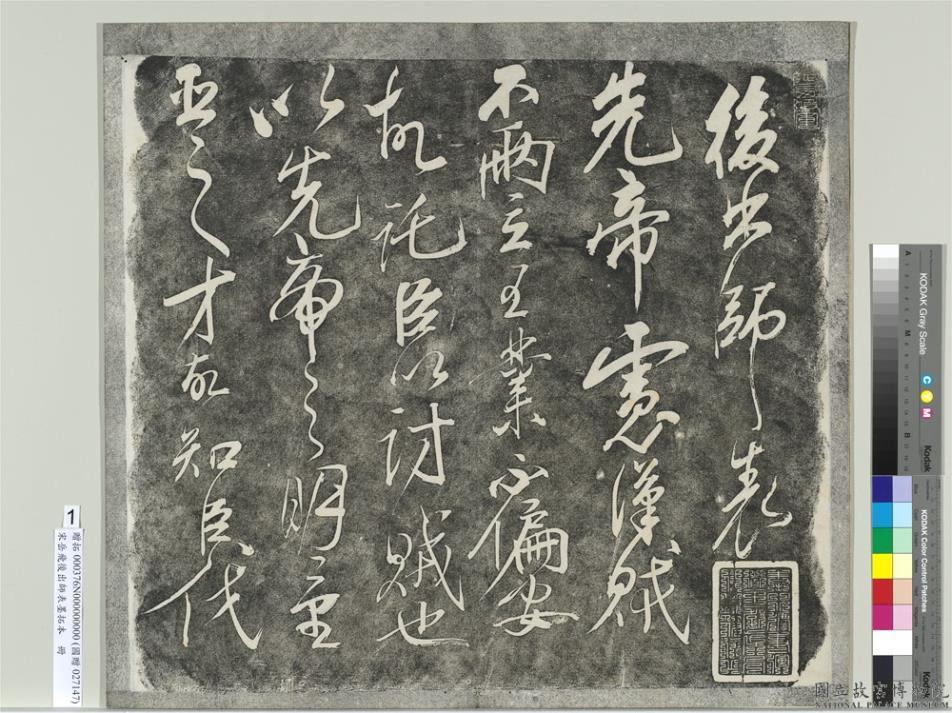 後出師表
先帝慮漢賊
不兩立王業不偏安
故託臣以討賊也
以先帝之明量
臣之才故知臣伐
1
贈拓 000376N000000000 (國贈 027147)
宋岳飛後出師表墨拓本 冊
KODAK Gray Scale
C Y M
Kodak
A M B
KODAK Color Control Patches
Kodak
國立故宮博物院
NATIONAL PALACE MUSEUM